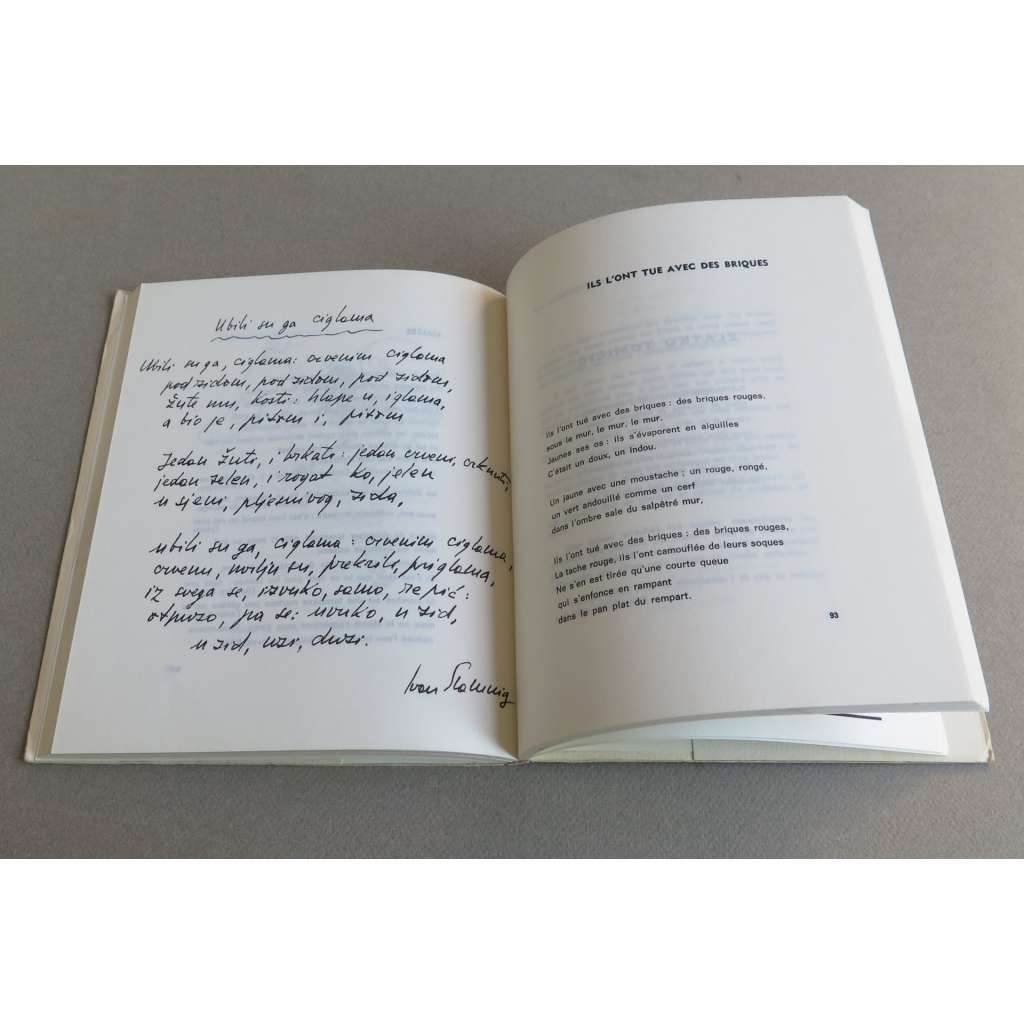 Ubili su ga ciglama
Ubili su ga, ciglama: crvenim ciglama
pod zidom, pod zidom, pod zidom,
žute mu, kosti: hlape u, iglama,
a bio je, pitom i, pitom
Jedan žuti, i brkati: jedan crveni, crknuti,
jedan zelen, i rogat ko, jelen
u sjeni, pljesnivog, zida,
ubili su ga, ciglama: crvenim ciglama,
crvenu, mrlju su, prekrili,
iz svega se, izvuko, samo, repić:
otpuzo, pa se: uvuko, u zid,
u zid, uzi, duzi.
Ivan Slamnig
ILS L'ONT TUE AVEC DES BRIQUES
Ils l'ont tué avec des briques : des briques rouges,
sous le mur, le mur, le mur.
Jaunes ses os : ils s'évaporent en aiguilles
C'était un doux, un lindou.
Un jaune avec une moustache ; un rouge, rongé,
un vert andouillé comme un cerf
dans l'ombre sale du salpêtré mur,
Ils l'ont tué avec des briques : des briques rouges,
La tache rouge, ils l'ont camouflée de leurs soques
Ne s'en est tirée qu'une courte queue
qui s'enfonce en rampant
dans le pan plat du rempart.
93